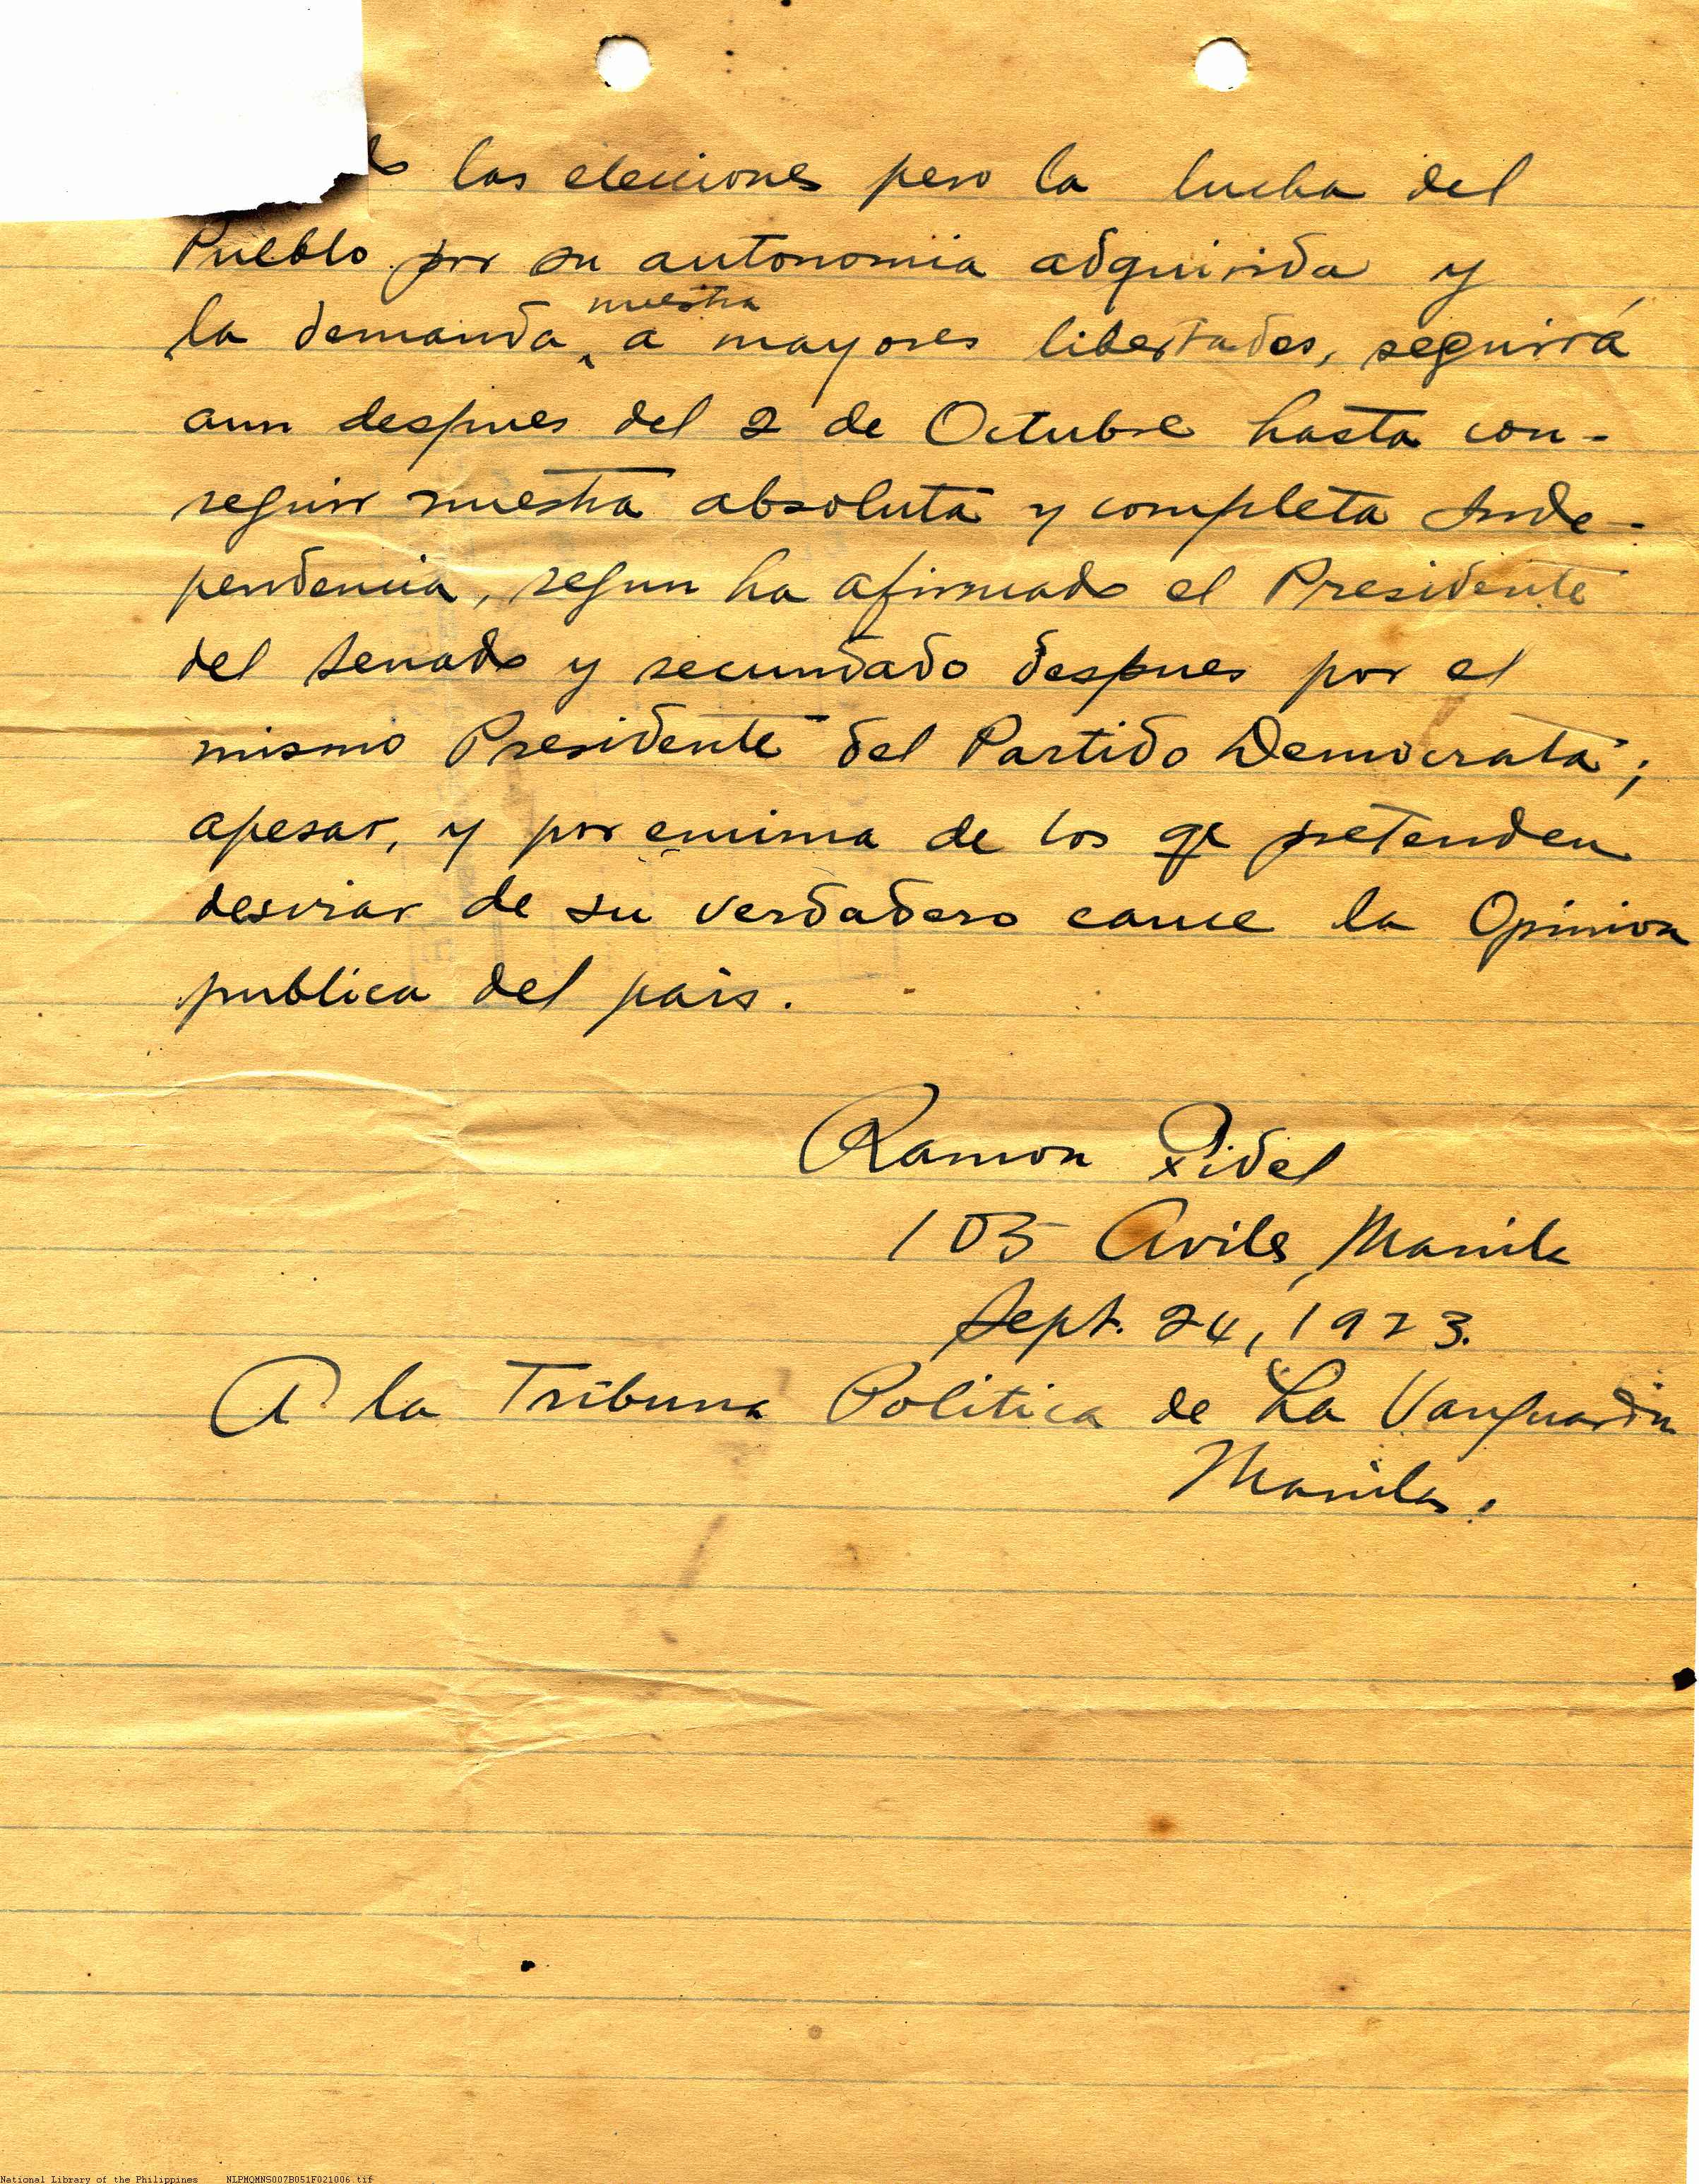 las elecciones pero la lucha del
Pueblo por su autonomia adquirida y
la demanda nuestra a mayores libertades, seguirá
aun despues del 2 de Octubre hasta con-
seguir nuestra absoluta y completa Inde-
pendencia, segun ha afirmado el Presidente
del Senado y secundado despues por el
mismo Presidente del Partido Democrata;
apesar, y por encima de los qe pretenden
desviar de su verdadero cauce la Opinion
publica del pais.
Ramon Fidel
105 Aviles, Manila
Sept. 24, 1923.
A la Tribuna Politica de "La Vanguardia
Manila.
National Library of the Philippines NLPMQMNS007B051F021006.tif